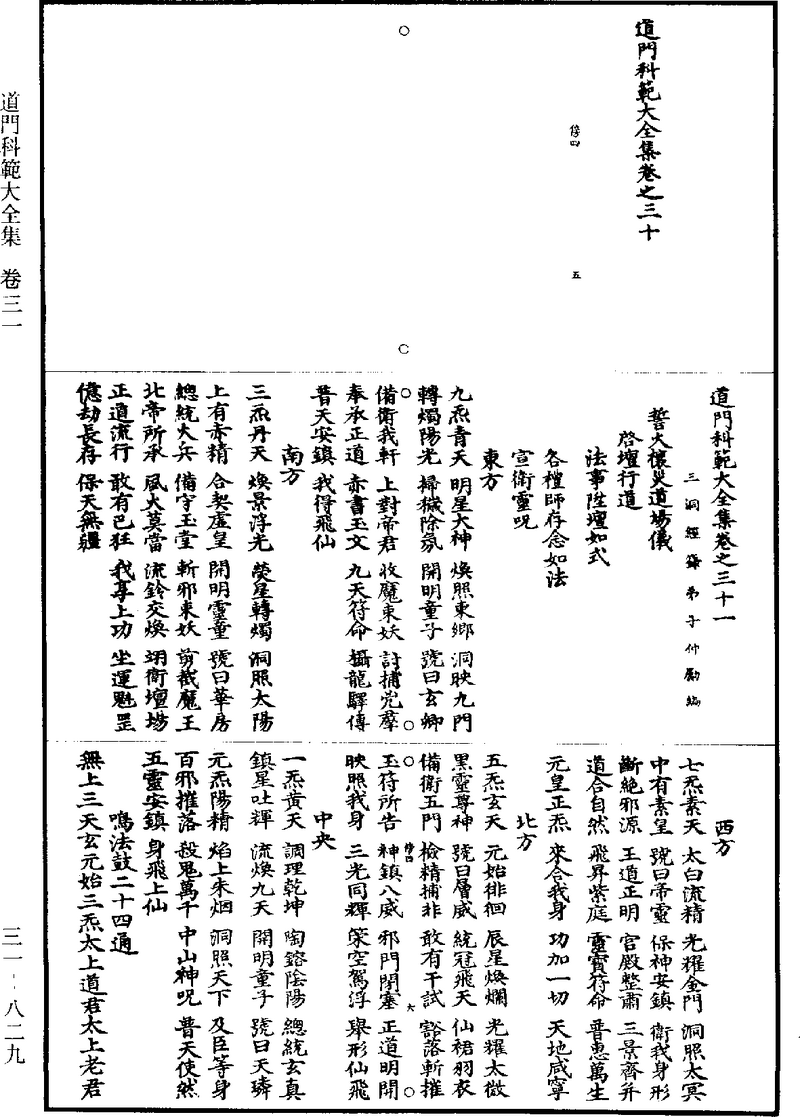 道門科範大全集卷之三十
傍四
五
道門科範大全集卷之三十一
三洞經籙弟子仲勵編
誓火禳災道場儀
啓壇行道
法事陞壇如式
各禮師存念如法
宣衛靈呪
東方
九炁青天 明星大神 煥照東鄉 洞映九門
轉燭陽光 掃穢除氛 開明童子 號曰玄卿
備衛我軒 上對帝君 收魔束妖 討捕兇羣
奉承正道 赤書玉文 九天符命 攝龍驛傳
普天安鎮 我得飛仙
南方
三炁丹天 煥景浮光 熒星轉燭 洞照太陽
上有赤精 合契虛皇 開明靈童 號曰華房
總統火兵 備守玉堂 斬邪束妖 剪截魔王
北帝所承 風火莫當 流鈴交煥 翊衛壇場
正道流行 敢有巴狂 我享上功 坐運魁罡
億劫長存 保天無疆
西方
七炁素天 太白流精 光耀金門 洞照太冥
中有素皇 號曰帝靈 保神安鎮 衛我身形
斷絕邪源 王道正明 官殿整肅 三景齊并
道合自然 飛昇紫庭 靈寶符命 普惠萬生
元皇正炁 來合我身 功加一切 天地咸寧
北方
五炁玄天 元始徘徊 辰星煥爛 光耀太微
黑靈尊神 號曰層威 統冠飛天 仙裙羽衣
備衛五門 檢精捕非 敢有干試 豁落斬摧
玉符所告 神鎮八威 邪門閉塞 正道明開
傍四
六
映照我身 三光同輝 策空駕浮 舉形仙飛
中央
一炁黃天 調理乾坤 陶鎔陰陽 總統玄真
鎮星吐輝 流煥九天 開明童子 號曰天璘
元炁陽精 焰上朱烟 洞照天下 及臣等身
百邪摧落 殺鬼萬千 中山神呪 普天使然
五靈安鎮 身飛上仙
鳴法鼓二十四通
無上三天玄元始三炁太上道君太上老君
道門科範大全集 卷三一
三一·八二九